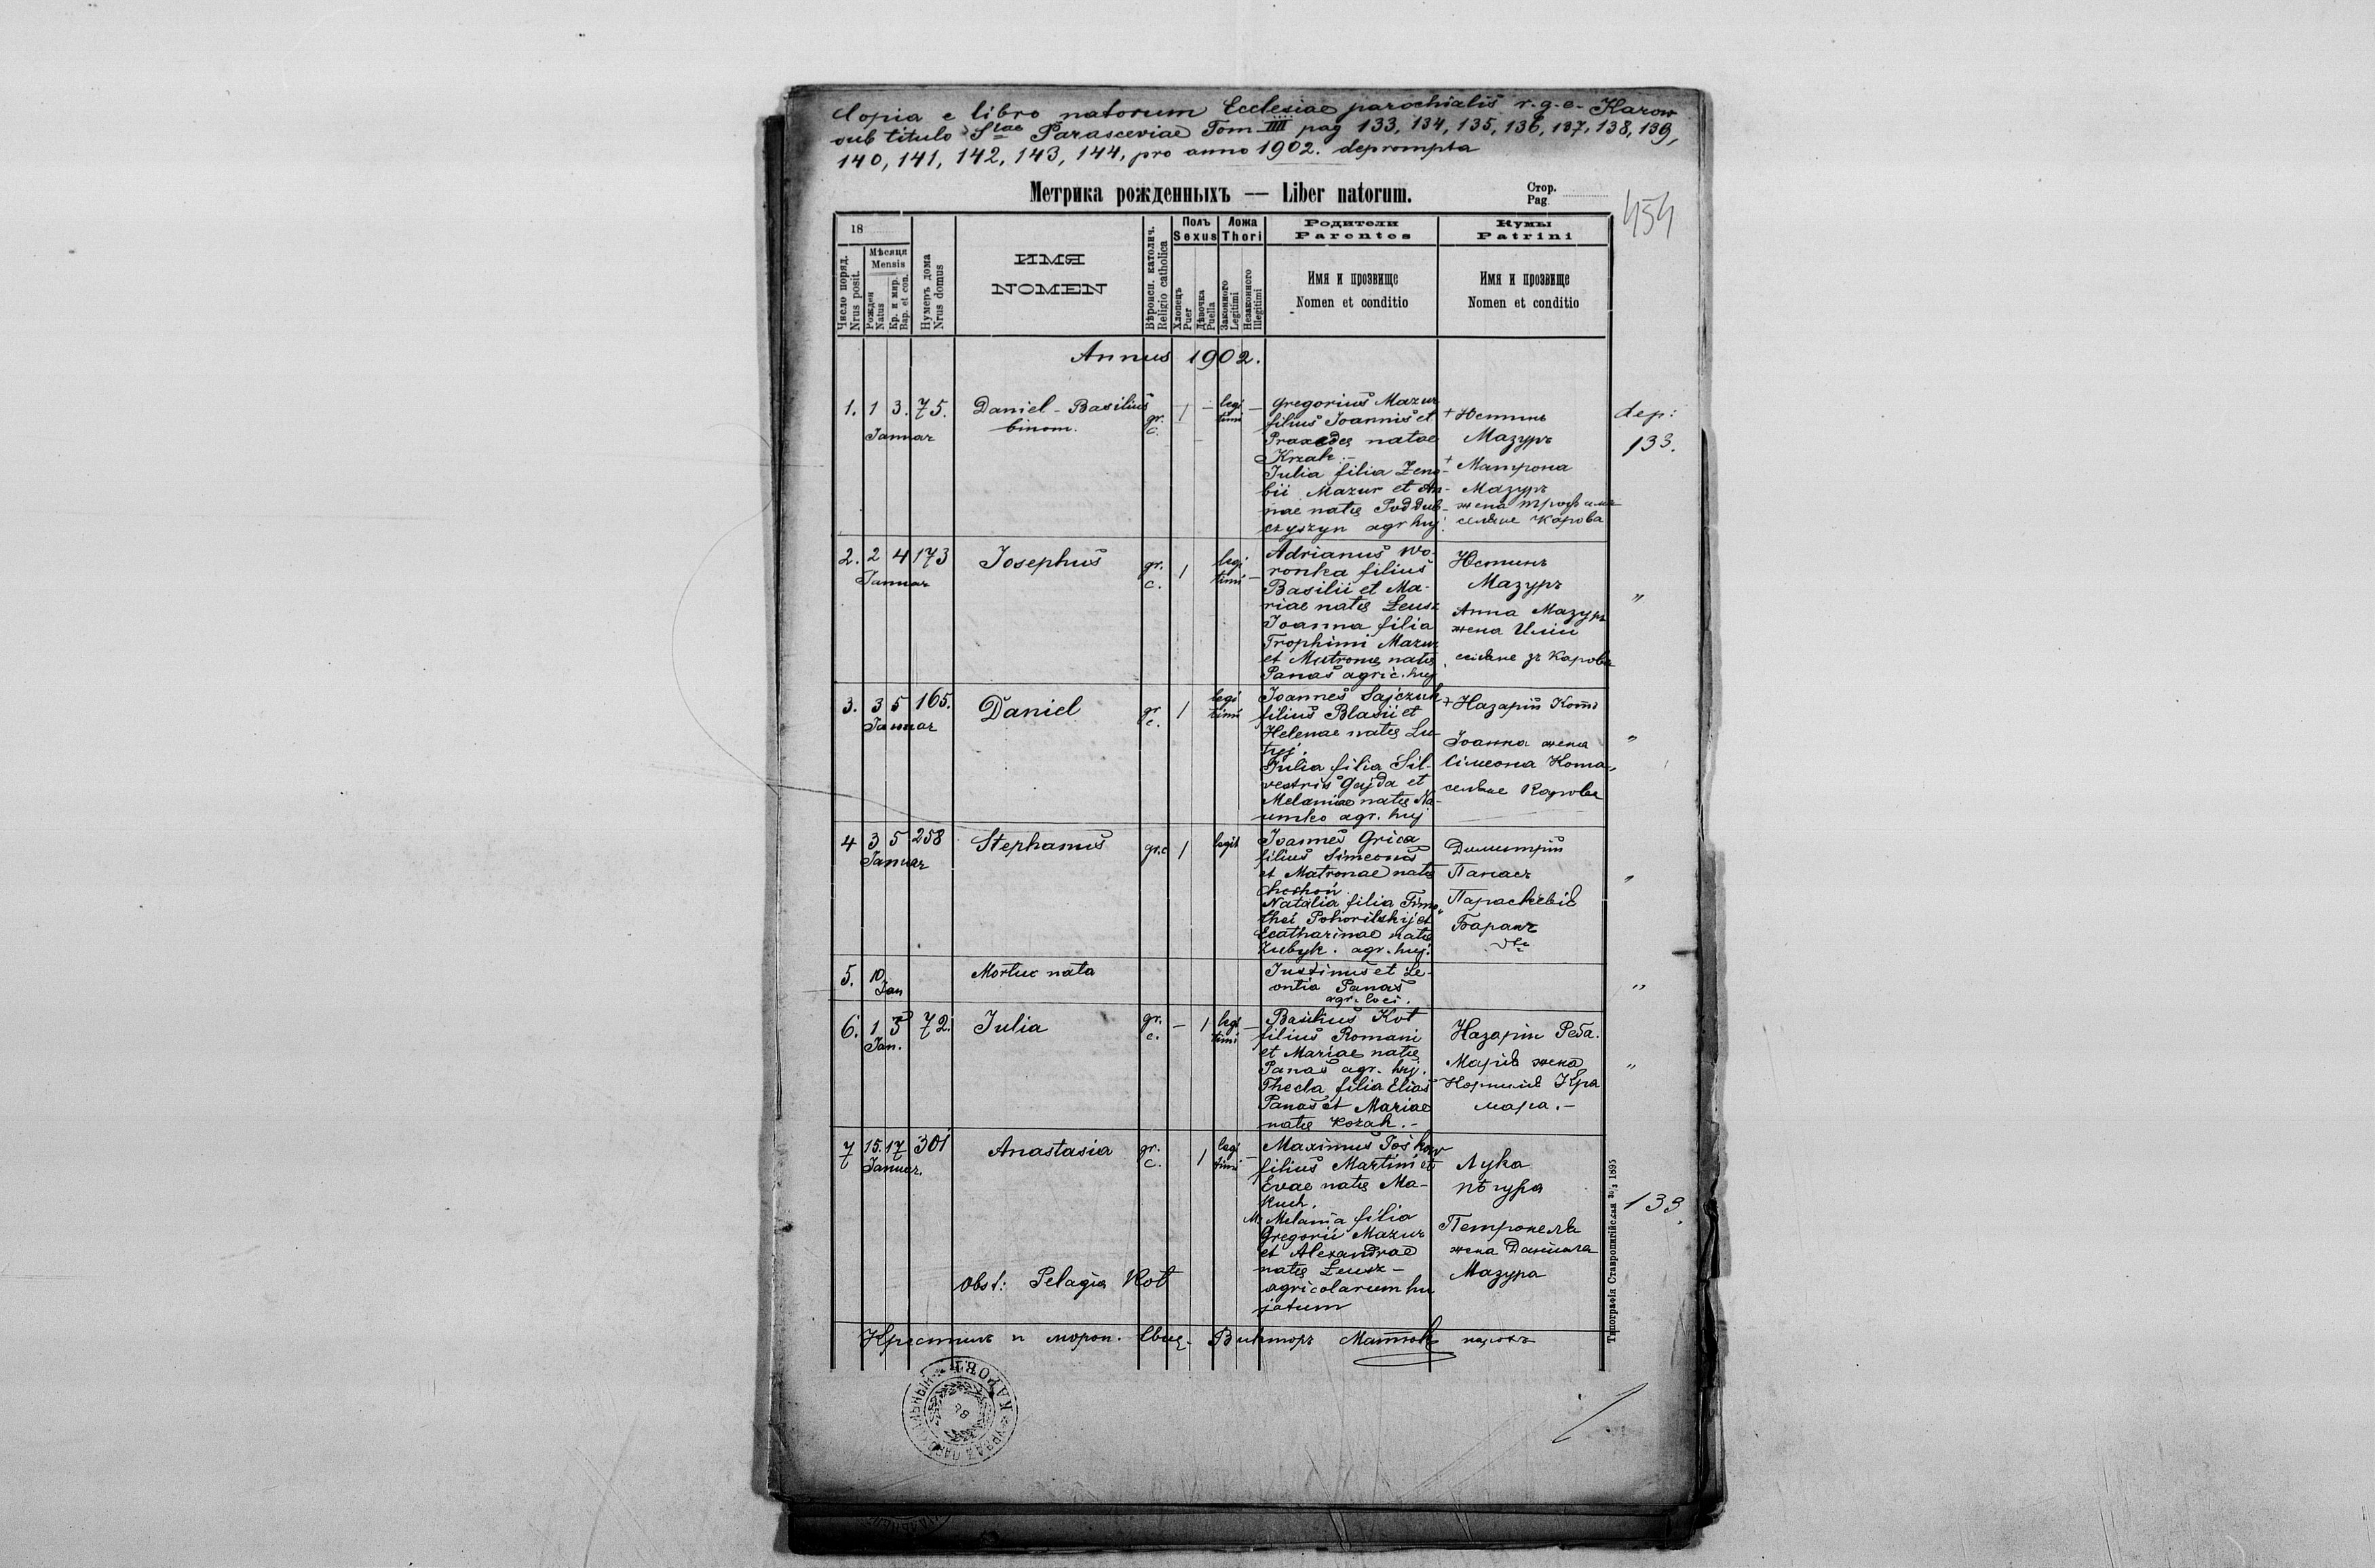 Copia e libro natorum Ecclesiae parochialis r. g. c. Karow
sub titulo Stae Parasceviae Tom IIII pag 133, 134, 135, 136, 137, 138, 139,
140, 141, 142, 143, 144, pro anno 1902. deprompta
Метрика рожденныхъ — Liber natorum.
Стор.
Pag.
454
18
Мѣсяця
Mensis
Число поряд.
Nrus posit.
Рожден
Natus
Кр. и мир.
Bap. et con.
Нумеръ дома
Nrus domus
ИМЯ
NOMEN
Вѣроисп. католич.
Religio catholica
Полъ
Sexus
Хлопецъ
Puer
Дѣвочка
Puella
Ложа
Thori
Законного
Legitimi
Незаконного
Illegitimi
Родители
Parentes
Имя и прозвище
Nomen et conditio
Кумы
Patrini
Имя и прозвище
Nomen et conditio
Annus 1902.
1. 1 3. 75.
Januar
Daniel - Basilius
binom.
gr.
c.
1 —
legi
timi
—
Gregorius Mazur
filius Joannis et
Praxedes natae
Krzak. —
Julia filia Zeno-
bii Mazur et An-
nae natę Poddub-
czyszyn agr huj.
+ Юстинъ
Мазуръ
+ Матрона
Мазуръ
жена Трофима
селяне Карова
dep:
133.
2. 2 4 173
Januar
Josephus
gr.
c.
1
legi
timi
—
Adrianus Wo-
ronka filius
Basilii et Ma-
riae natę Leusz
Joanna filia
Trophimi Mazur
et Matronę natę
Panas agric. huj
Юстинъ
Мазуръ
Анна Мазуръ
жена Иліи
селяне зъ Карова
"
3. 3 5 165.
Januar
Daniel
gr
c.
1
legi
timi
Joannes Sajczuk
filius Blasii et
Helenae natę Lu-
tyj.
Julia filia Sil-
vestris Gajda et
Melaniae natę Na-
umko agr. huj
+ Назарій Котъ
Іоанна жена
Сімеона Кота,
селяне Карова
"
4 3 5 258
Januar
Stephanus
gr. c
1
legit
Joannes Grica
filius Simeonis
et Matronae natę
Natalia filia Timo-
thei Pohorilskij et
Ecatharinae natę
Zubyk. agr. huj.
Димитрій
Панасъ
Параскевія
Баранъ
"
5. 10
Jan
Mortue nata
Justinus et Le-
ontia Panas
agr. loci.
"
6. 1 3 72.
Jan.
Julia
gr.
c.
— 1
legi
timi
—
Basilius Kot
filius Romani
et Mariae natę
Panas agr. huj.
Thecla filia Elias
Panas et Mariae
natę Kozak. —
Назарій Реба.
Марія жена
Корнилія Кра
мара. —
"
7 15. 17 301
Januar.
Anastasia
gr.
c.
1
legi
timi
—
Maximus Joskow
filius Martini et
Evae natę Ma-
kuch.
M. Melania filia
Gregorii Mazur
et Alexandrae
natę Leusz —
agricolarum hu
jatum
Лука
Петронеля
жена Даніила
Мазура
133.
obst: Pelagia Kot
Крестилъ и мѵроп. Свящ. Викторъ Матюк парохъ
Типографія Ставропигійская 20/3 1895
УРЯДЪ ПАРОХІАЛЬНЫЙ КАРОВЪ